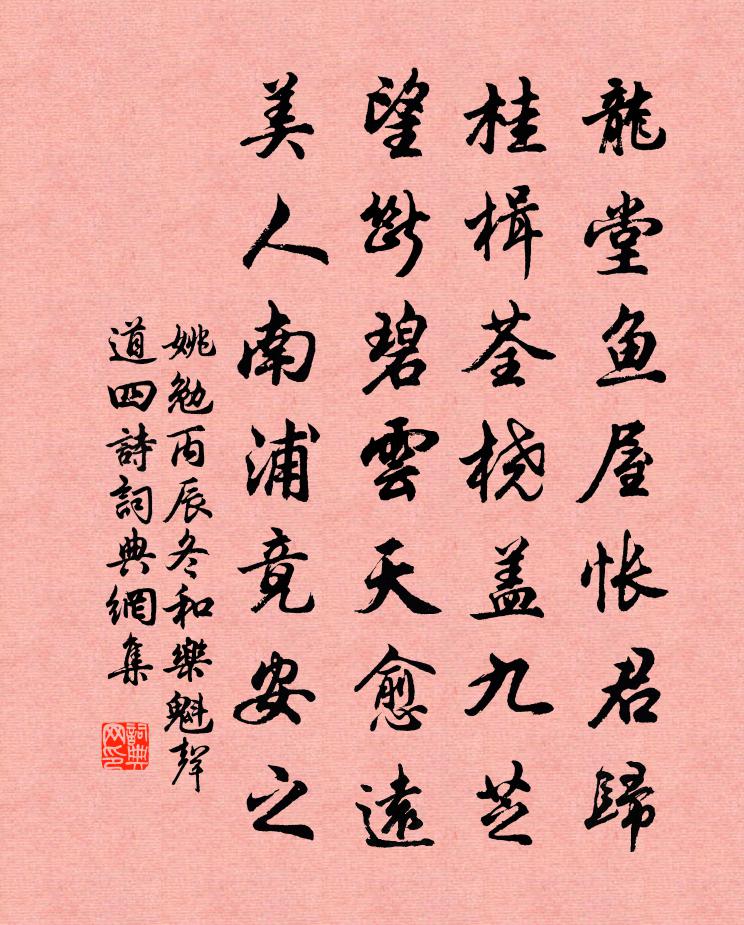 龍堂鱼屋怅君歸
桂楫荃桡盖九芝
望斷碧雲天愈遠
美人南浦竟安之
姚勉丙辰冬和樂魁聲
道四詩詞典網集
詞典網印